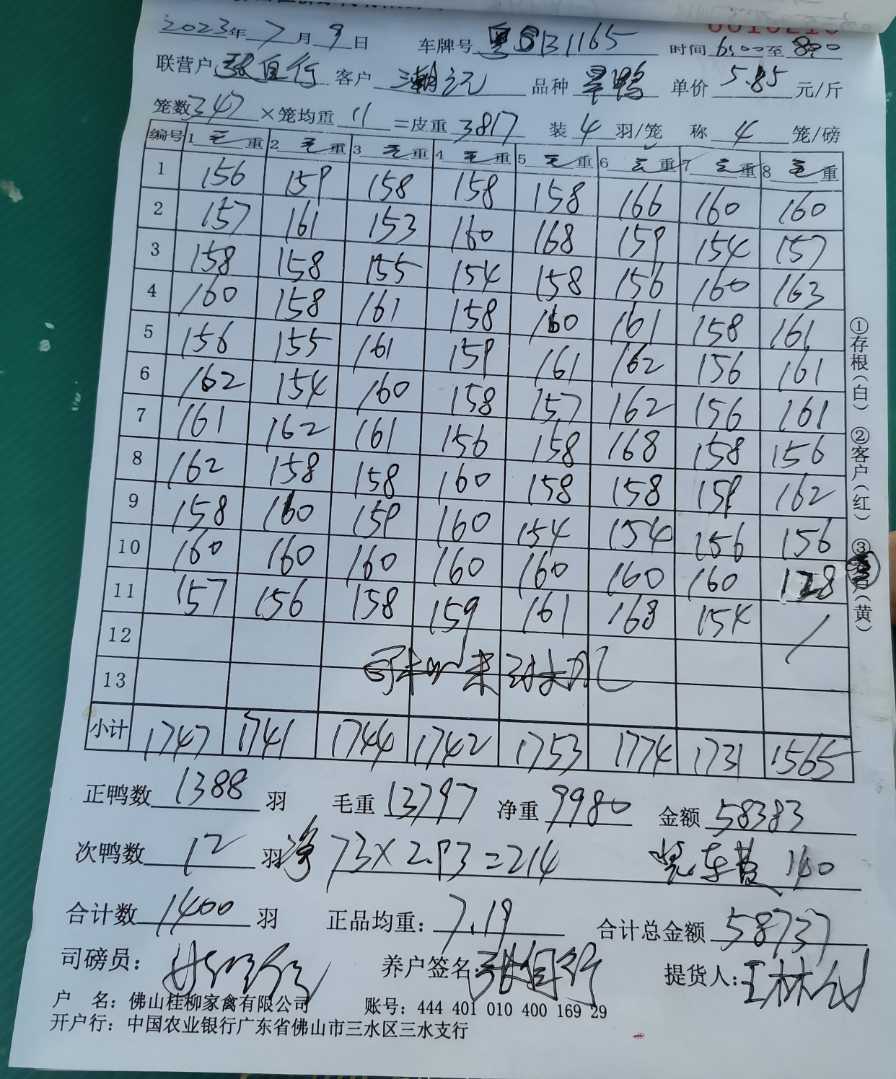 2023年7月9日 车牌号 粤 B1165 时间 6:00至8:00
联营户 张宜行 客户 潮记 品种 旱鸭 单价 5.85 元/斤
笼数347×笼均重11=皮重3817 装4羽/笼 称4笼/磅
编号 1毛重 2毛重 3毛重 4毛重 5毛重 6毛重 7毛重 8毛重
1 156 159 158 158 158 166 160 160
2 157 161 153 160 168 159 154 157
3 158 158 155 154 158 156 160 163
4 160 158 161 158 160 161 158 161
5 156 155 161 159 161 162 156 161
6 162 154 160 158 157 162 156 161
7 161 162 161 156 158 168 158 156
8 162 158 158 160 158 158 159 162
9 158 160 159 160 154 154 156 156
10 160 160 160 160 160 160 160 128
11 157 156 158 159 161 168 154 /
12
13
小计 1747 1741 1744 1742 1753 1774 1731 1565
正鸭数 1388 羽 毛重 13797 净重 9980 金额 58383
次鸭数 12 羽 净 73×2.93=214 洗车费 140
合计数 1400 羽 正品均重：7.19 合计总金额 58737
司磅员： 养户签名 提货人：王林
户 名：佛山桂柳家禽有限公司 账号：444 401 010 400 169 29
开户行：中国农业银行广东省佛山市三水区三水支行
①存根（白） ②客户（红） ③ 户（黄）